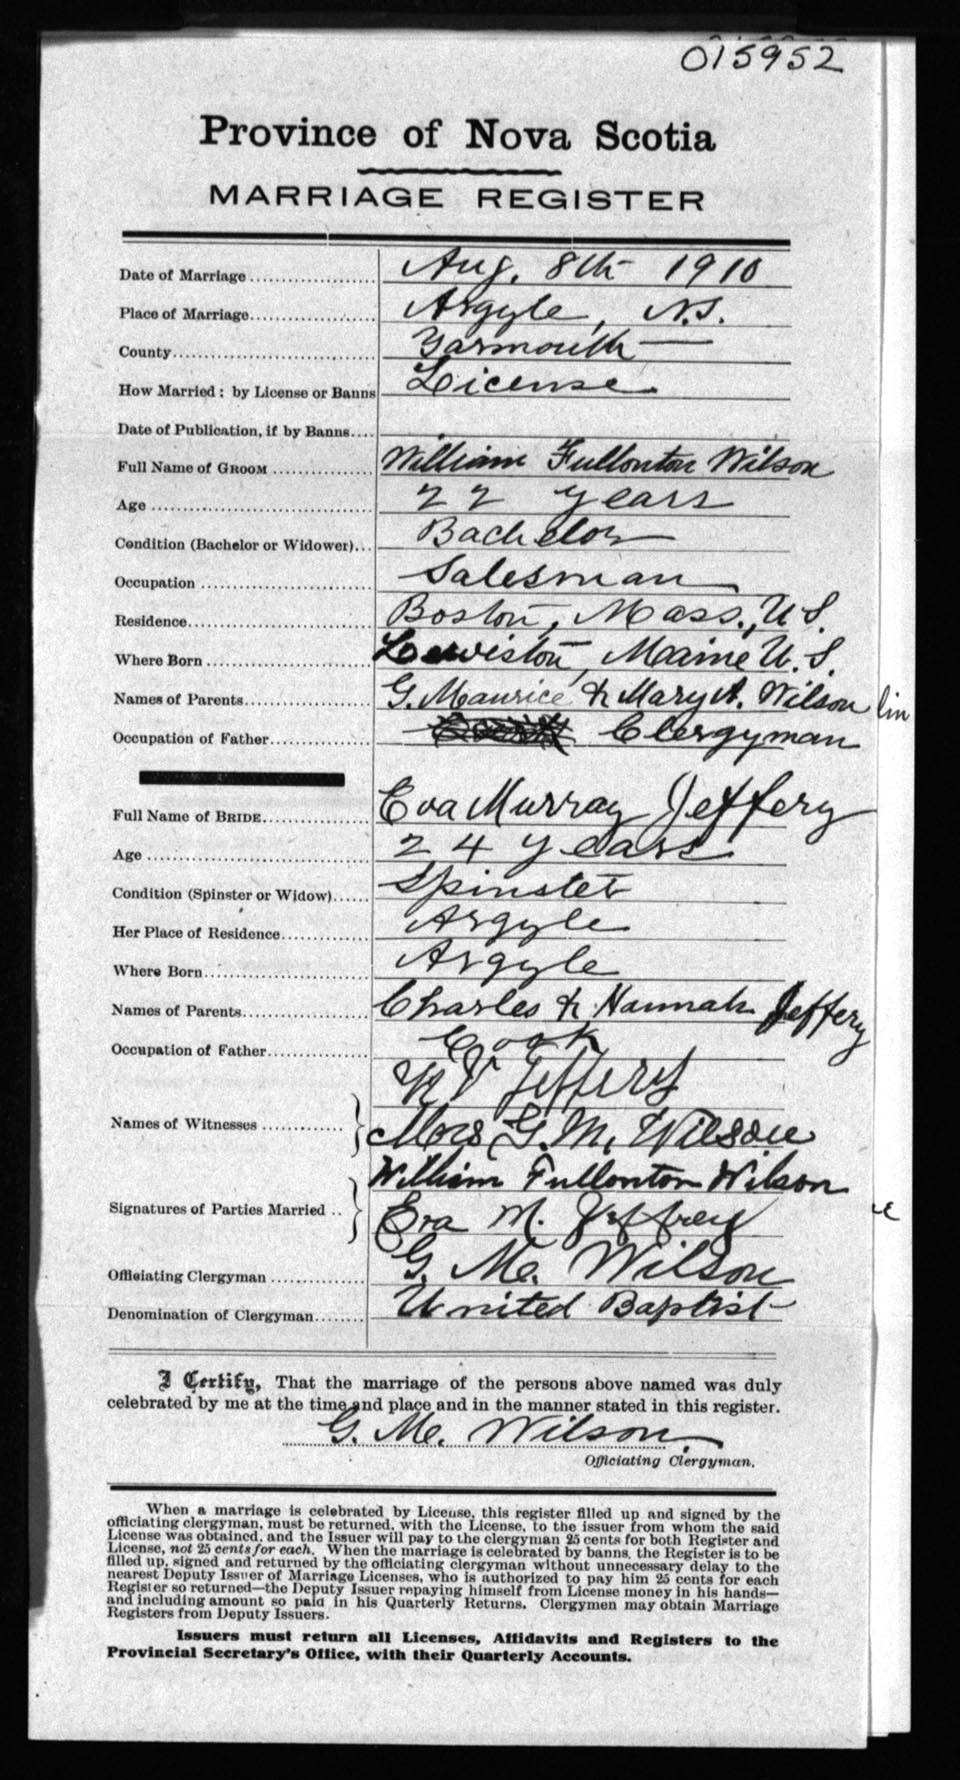 015952
Province of Nova Scotia
MARRIAGE REGISTER
Date of Marriage.................... Aug. 8th 1910
Place of Marriage.................... Argyle, N.S.
County.................... Yarmouth
How Married: by License or Banns License
Date of Publication, if by Banns....
Full Name of GROOM .................... William Fullonton Wilson
Age .................... 22 years
Condition (Bachelor or Widower)... Bachelor
Occupation .................... Salesman
Residence.................... Boston, Mass., U.S.
Where Born .................... Lewiston, Maine U.S.
Names of Parents.................... G. Maurice & Mary A. Wilson lin
Occupation of Father.................... Clergyman
Full Name of BRIDE.................... Eva Murray Jeffery
Age .................... 24 years
Condition (Spinster or Widow)...... Spinster
Her Place of Residence.................... Argyle
Where Born.................... Argyle
Names of Parents.................... Charles & Hannah Jeffery
Occupation of Father.................... Cook
Jeffery
Names of Witnesses .................... Mrs G. M. Wilson
William Fullonton Wilson
Signatures of Parties Married .. Eva M. Jeffrey
Officiating Clergyman .................... G. M. Wilson
Denomination of Clergyman.................... United Baptist
I Certify, That the marriage of the persons above named was duly
celebrated by me at the time and place and in the manner stated in this register.
G. M. Wilson.
Officiating Clergyman.
When a marriage is celebrated by License, this register filled up and signed by the
officiating clergyman, must be returned, with the License, to the issuer from whom the said
License was obtained, and the Issuer will pay to the clergyman 25 cents for both Register and
License, not 25 cents for each. When the marriage is celebrated by banns, the Register is to be
filled up, signed and returned by the officiating clergyman without unnecessary delay to the
nearest Deputy Issuer of Marriage Licenses, who is authorized to pay him 25 cents for each
Register so returned—the Deputy Issuer repaying himself from License money in his hands—
and including amount so paid in his Quarterly Returns. Clergymen may obtain Marriage
Registers from Deputy Issuers.
Issuers must return all Licenses, Affidavits and Registers to the
Provincial Secretary's Office, with their Quarterly Accounts.